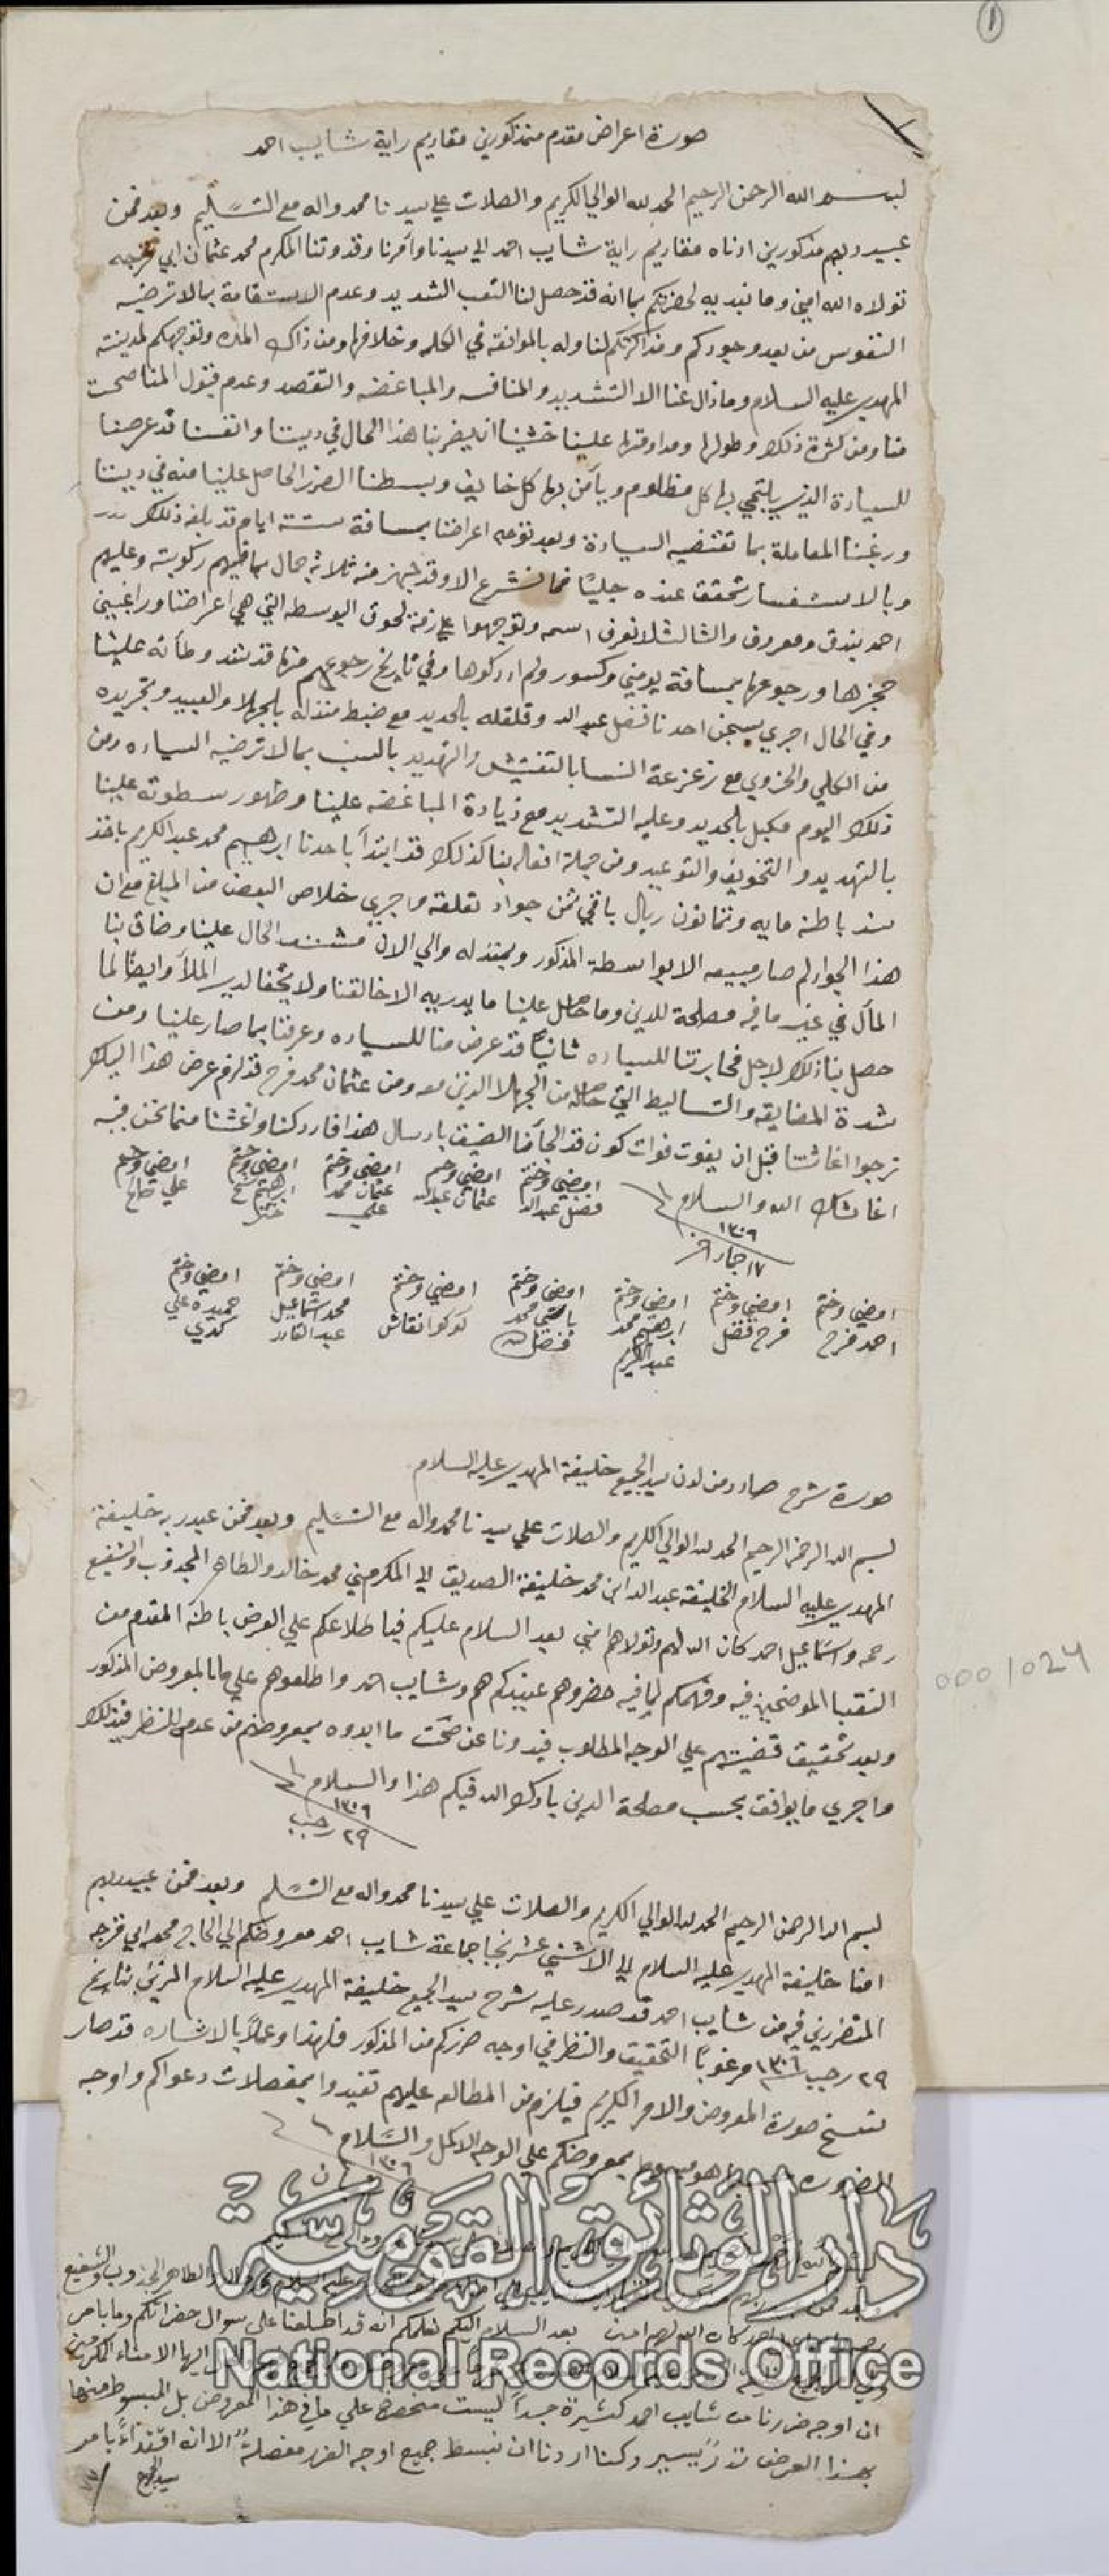 صورة اعراض مقدم من مذكورين مقاديم راية شايب احمد
بسم الله الرحمن الرحيم الحمد لله الوالي الكريم والصلاة علي سيدنا محمد واله مع التسليم وبعد فمن
عبيد ربهم مذكورين ادناه مقاديم راية شايب احمد الي سيدنا وآمرنا وقدوتنا المكرم محمد عثمان ابي قرجه
تولاه الله امين وما نبديه لحضرتكم بما انه قد حصل لنا التعب الشديد وعدم الاستقامة بما لا ترضيه
النفوس من بعد وجودكم ومذاكرتكم لنا وله بالموافقه في الكلمه وخلافها ومن ذاك المده وتوجهكم لمدينة
المهدي عليه السلام وما ذال عنا الا التشديد والمنافسه والمباغضه والتقصد وعدم قبول المناصحت
منا ومن كثرة ذلك وطولها ومداومتها علينا خشينا ان يضر بنا هذا الحال في ديننا وانفسنا قد عرضنا
للسيادة الذي يلتجي بها كل مظلوم ويأمن بها كل خايف وبسطنا الضرر الحاصل علينا منه في ديننا
ورغبنا المعاملة بما تقتضيه السيادة وبعد توجه اعراضنا بمسافة ستة ايام قد بلغه ذلك
وبالاستفسار تحقق عنده جليًا فما نشرع الا وقد جهز منه ثلاثة جمال بما فيهم ركوبته وعليهم
احمد بندق ومعروف والثالث لا نعرف اسمه وتوجهوا علي زمة لحوق البوسطه التي هي اعراضنا وراغبين
حجزها ورجوعها بمسافة يومين وكسور ولم ادركوها وفي تاريخ رجوعهم منها قد شدد وطأته علينا
وفي الحال اجري بسجن احدنا فضل عبد الله وقلقله بالحديد مع ضبط منزله بالجهلا والعبيد وتجريده
من الكلي والجزوي مع زعزعة النسا بالتفتيش والتهديد بالسب بما لا ترضيه السياده ومن
ذلك اليوم مكبل بالحديد وعليه التشديد مع زيادة المباغضه علينا وظهور سطوته علينا
بالتهديد والتخويف والتوعيد ومن جملة افعاله بنا كذلك قد ابتدأ باحدنا ابراهيم محمد عبد الكريم باخذ
سند باطنه مايه وثمانون ريال باقي ثمن جواد تعلقه وجري خلاص البعض من المبلغ مع ان
هذا الجواد لم صار مبيعه الا بواسطة المذكور وبمنزله والي الان مشتد الحال علينا وضاق بنا
المأل في غير ما فيه مصلحة للدين وما حاصل علينا ما يدريه الا خالقنا ولا يخفا لدي الملأ وايضًا لما
حصل بنا ذلك لاجل مخابرتنا للسياده ثانيًا قد عرض منا للسياده وعرفنا بما صار علينا ومن
شدة المضايقه والتساليط التي حاصله من الجهلا الذين معه ومن عثمان محمد فرح قد لزم عرض هذا اليك
نرجوا اغاثتنا قبل ان يفوت فوات كون قد الجأنا الضيق بارسال هذا فادركنا واغثنا مما نحن فيه
اغاثك الله والسلام
١٣٠٦
١٧ جماد اخر
امضي وختم فضل عبد الله
امضي وختم عثمان عبد الله
امضي وختم عثمان محمد علي
امضي وختم ابراهيم
امضي وختم علي صالح
امضي وختم احمد فرح
امضي وختم فرح فضل
امضي وختم ابراهيم محمد عبد الكريم
امضي وختم محمد فضل الله
امضي وختم كوكو انقاش
امضي وختم محمد اسماعيل عبد القادر
امضي وختم حميده علي كدي
صورة شرح صادر من لدن سيد الجميع خليفة المهدي عليه السلام
بسم الله الرحمن الرحيم الحمد لله الوالي الكريم والصلات علي سيدنا محمد واله مع التسليم وبعد فمن عبد ربه خليفة
المهدي عليه السلام الخليفة عبد الله ابن محمد خليفة الصديق الي المكرمين محمد خالد والطاهر المجذوب والشفيع
رحمه واسماعيل احمد كان الله لهم وتولاهم امين بعد السلام عليكم فباطلاعكم علي العرض باطنه المقدم من
النقبا الموضحين فيه وفهمكم لما فيه حضروهم عندكم هم وشايب احمد واطلعوهم علي ما بالمعروض المذكور
وبعد تحقيق قضيتهم علي الوجه المطلوب فيدونا عن صحت ما ابدوه بمعروضهم من عدم النظر في ذلك
واجري ما يوافق بحسب مصلحة الدين بارك الله فيكم هذا والسلام
١٣٠٦
٢٩ رجب
بسم الله الرحمن الرحيم الحمد لله الوالي الكريم والصلات علي سيدنا محمد واله مع التسليم وبعد فمن عبيد ربهم
امنا خليفة المهدي عليه السلام الي الاثني عشر نجبا جماعة شايب احمد معروضكم الي الحاج محمد ابي قرجه
المتضررين فيه من شايب احمد قد صدر عليه شرح سيد الجميع خليفة المهدي عليه السلام بتاريخ
٢٩ رجب ١٣٠٦ مرغوبًا التحقيق والنظر في اوجه ضرركم من المذكور فلهذا وعملاً بالاشاره قد صار
نسخ صورة المعروض والامر الكريم فيلزم من المطالعه عليهم تفيدوا بمفصلات دعواكم واوجه
هو مبسوط بمعروضكم علي الوجه الاكمل والسلام
١٣٠٦
دار الوثائق القومية
والطاهر المجذوب والشفيع
احمد كان الله لهم امين بعد السلام اليكم نعلمكم انه قد اطلعنا على سوال حضراتكم وما
National Records Office
ايها الامناء المكرمين
ان اوجه ضررنا من شايب احمد كثيرة جداً ليست منحصرة على ما في هذا المعروض بل المبسوط منها
بهذا العرض نذرٌ يسير وكنا اردنا ان نبسط جميع اوجه الضرر مفصلةً الا انه بامر
سيد الجميع
0001024
1